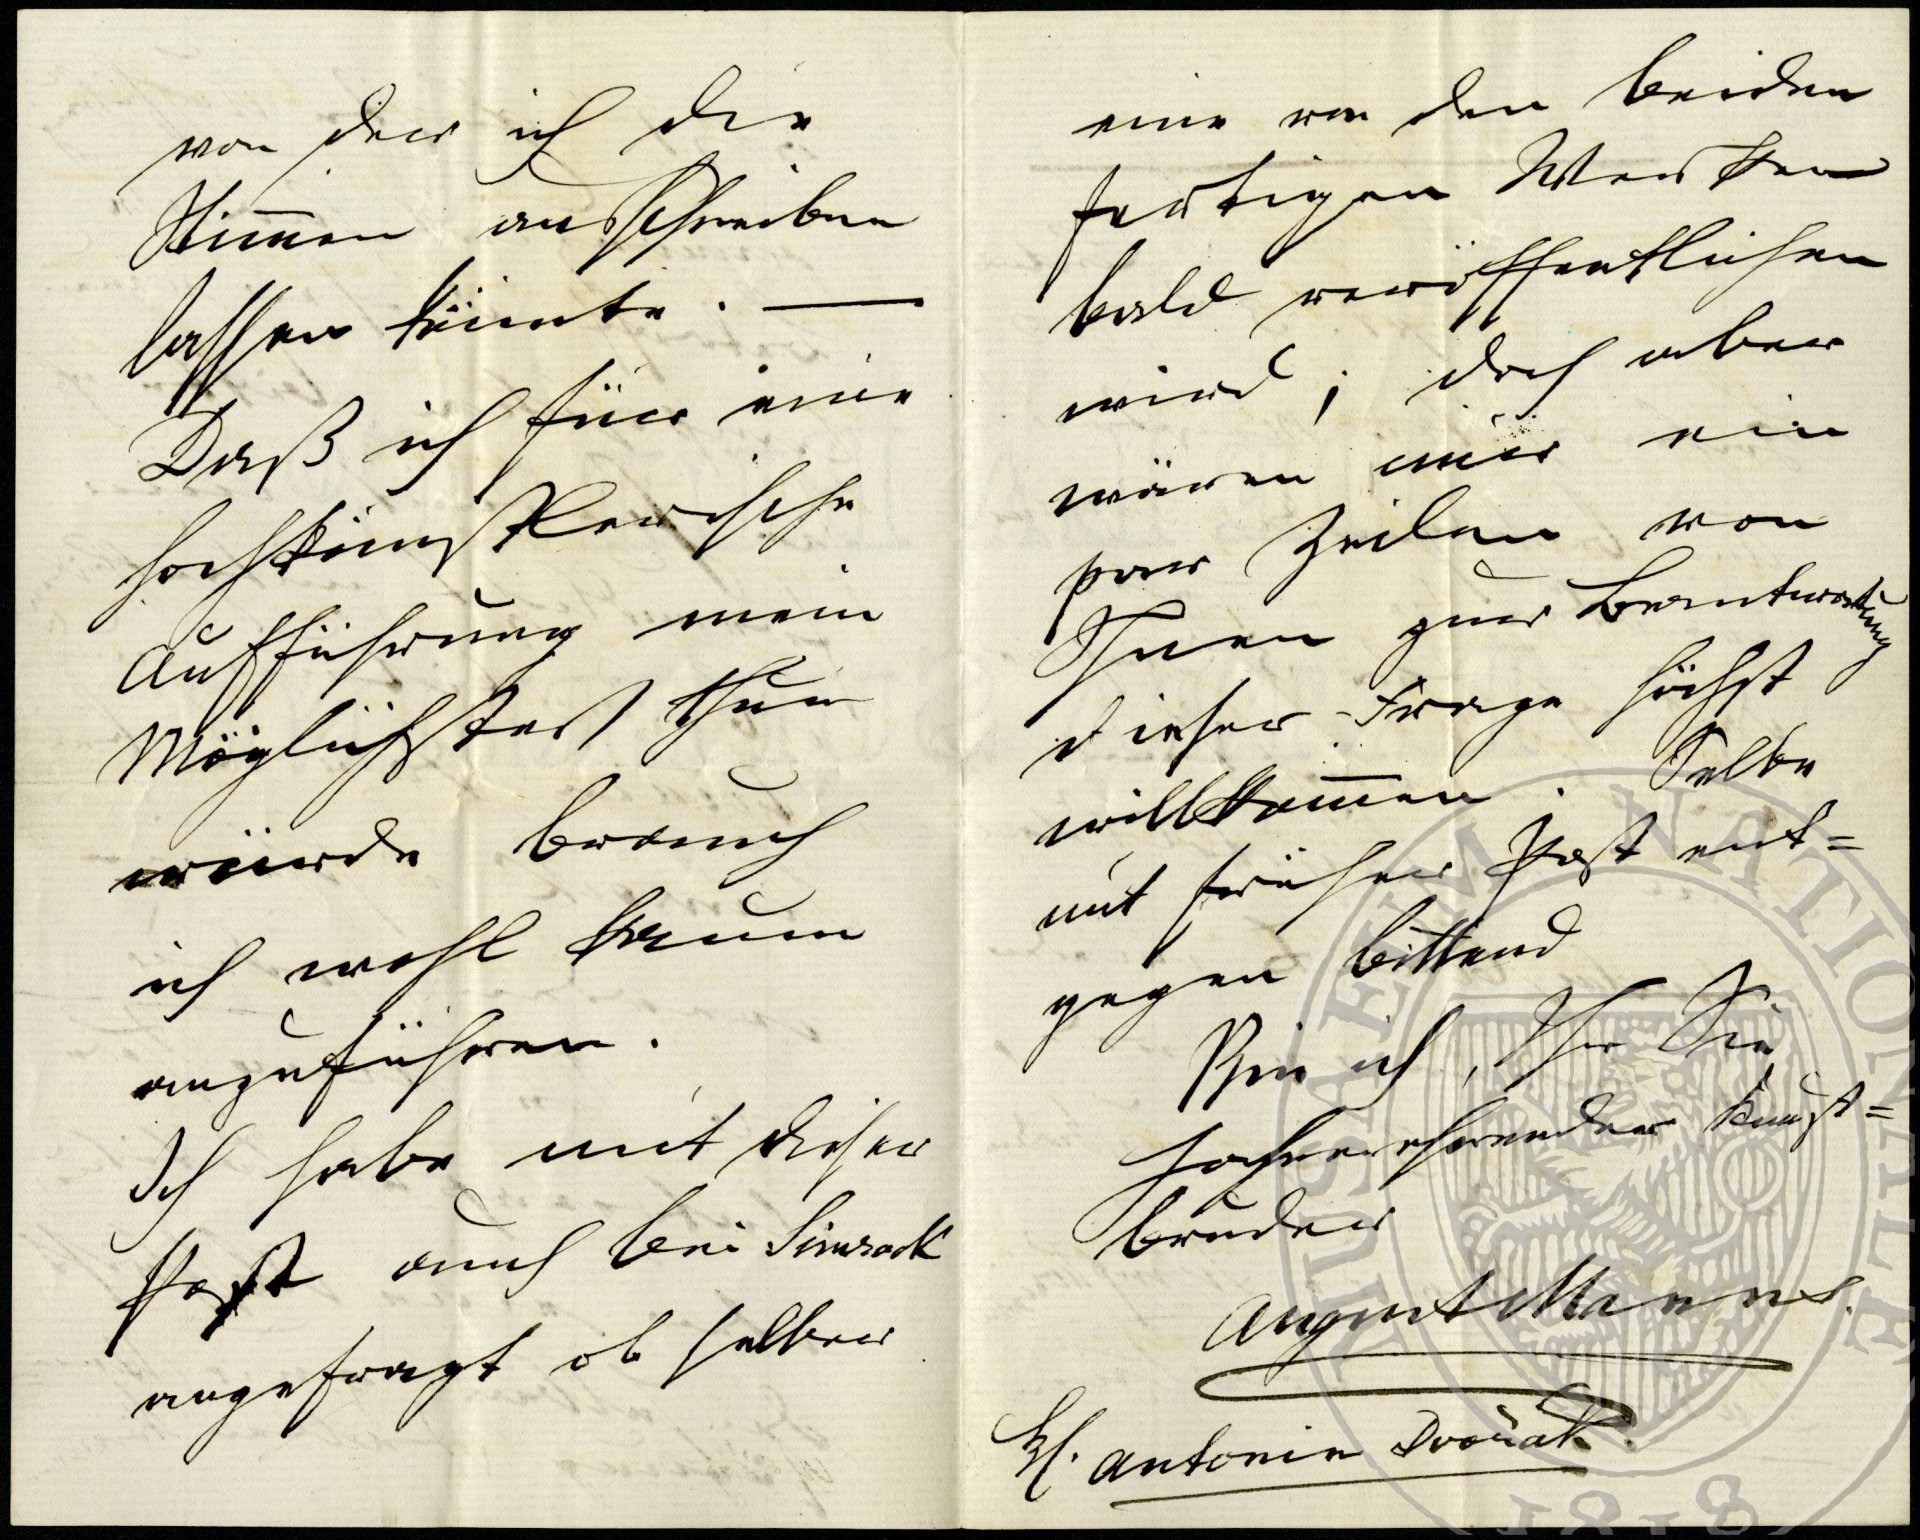 von der ich die
Stimmen ausschreiben
lassen könnte. —
Daß ich für eine
hochkünstlerische
Aufführung mein
Möglichstes thun
würde brauch
ich wohl kaum
anzuführen.
Ich habe mit dieser
Post auch bei Simrock
angefragt ob selber
eine von den beiden
fertigen Werken
bald veröffentlichen
wird; doch aber
wären mir ein
paar Zeilen von
Ihnen zur Beantwortung
dieser Frage höchst
willkommen. Selbe
mit früher Post ent=
gegen bittend
Bin ich, Ihr Sie
hochverehrender Kunst=
bruder
August Manns.
H. Antonin Dvořák.
MUSAEUM NATIONALE
1818